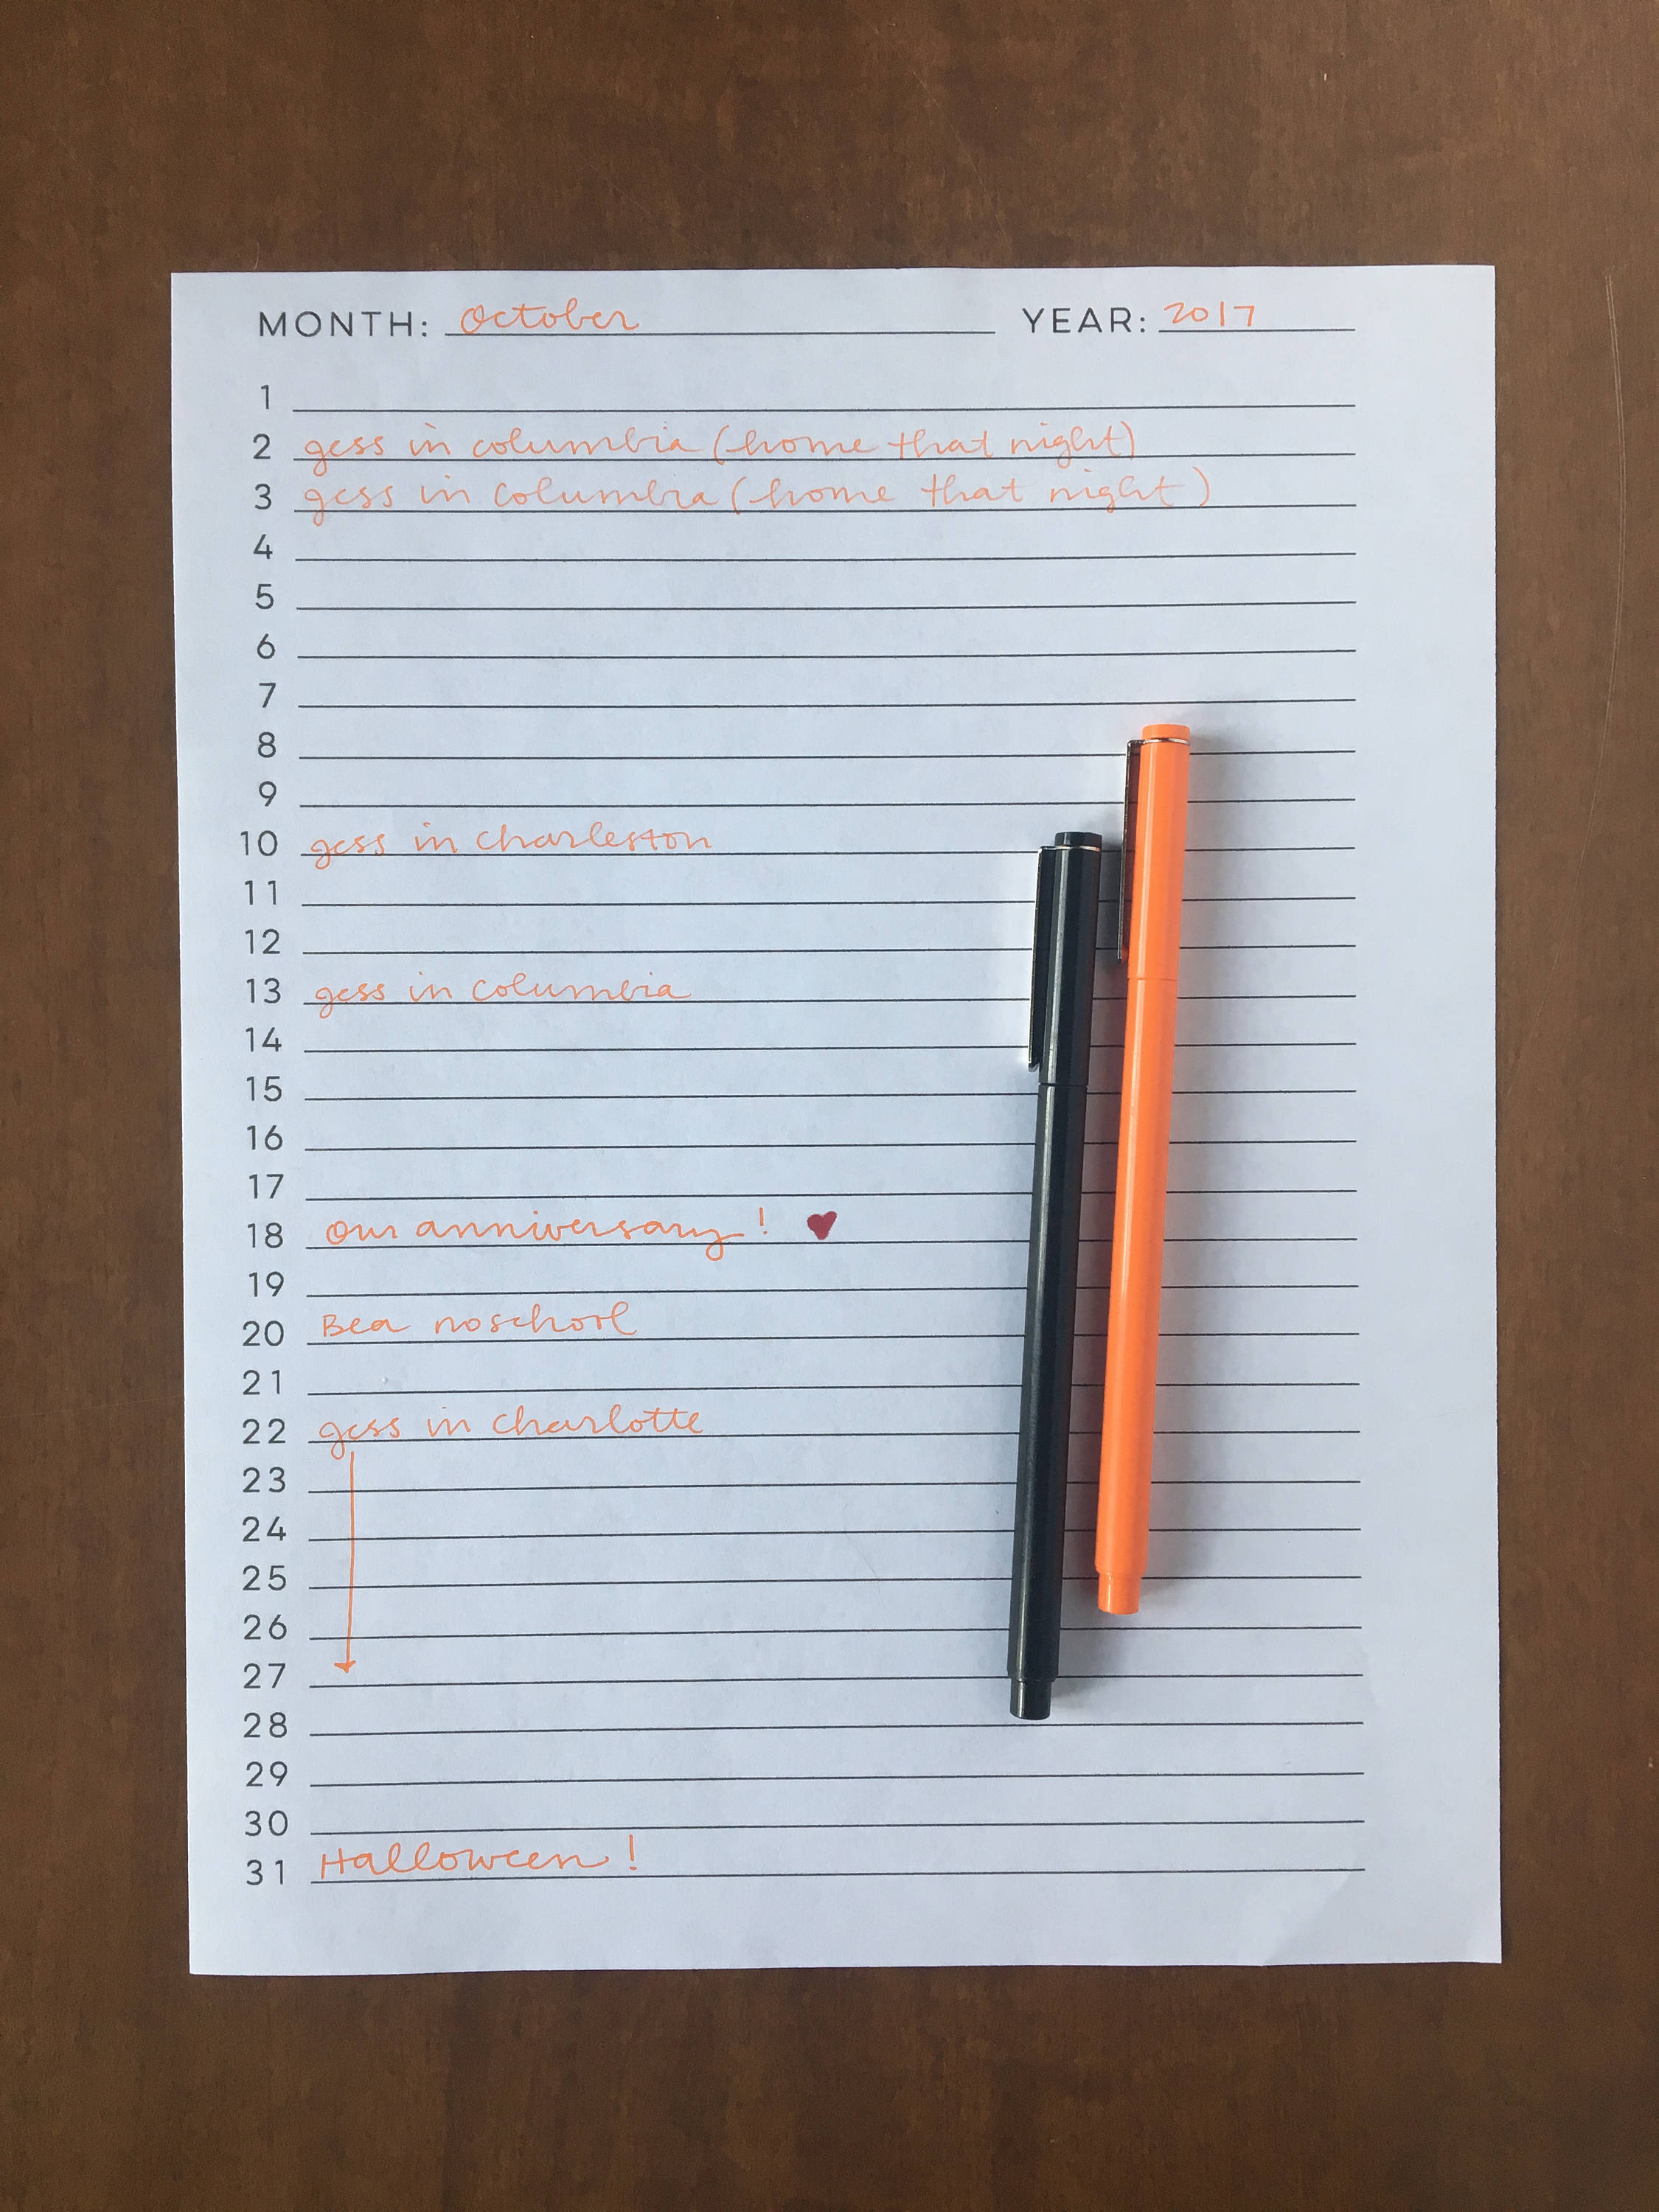 MONTH: October YEAR: 2017
1
2 gess in columbia (home that night)
3 gess in columbia (home that night)
4
5
6
7
8
9
10 gess in charleston
11
12
13 gess in columbia
14
15
16
17
18 our anniversary!
19
20 Bea no school
21
22 gess in charlotte
23
24
25
26
27
28
29
30
31 Halloween!